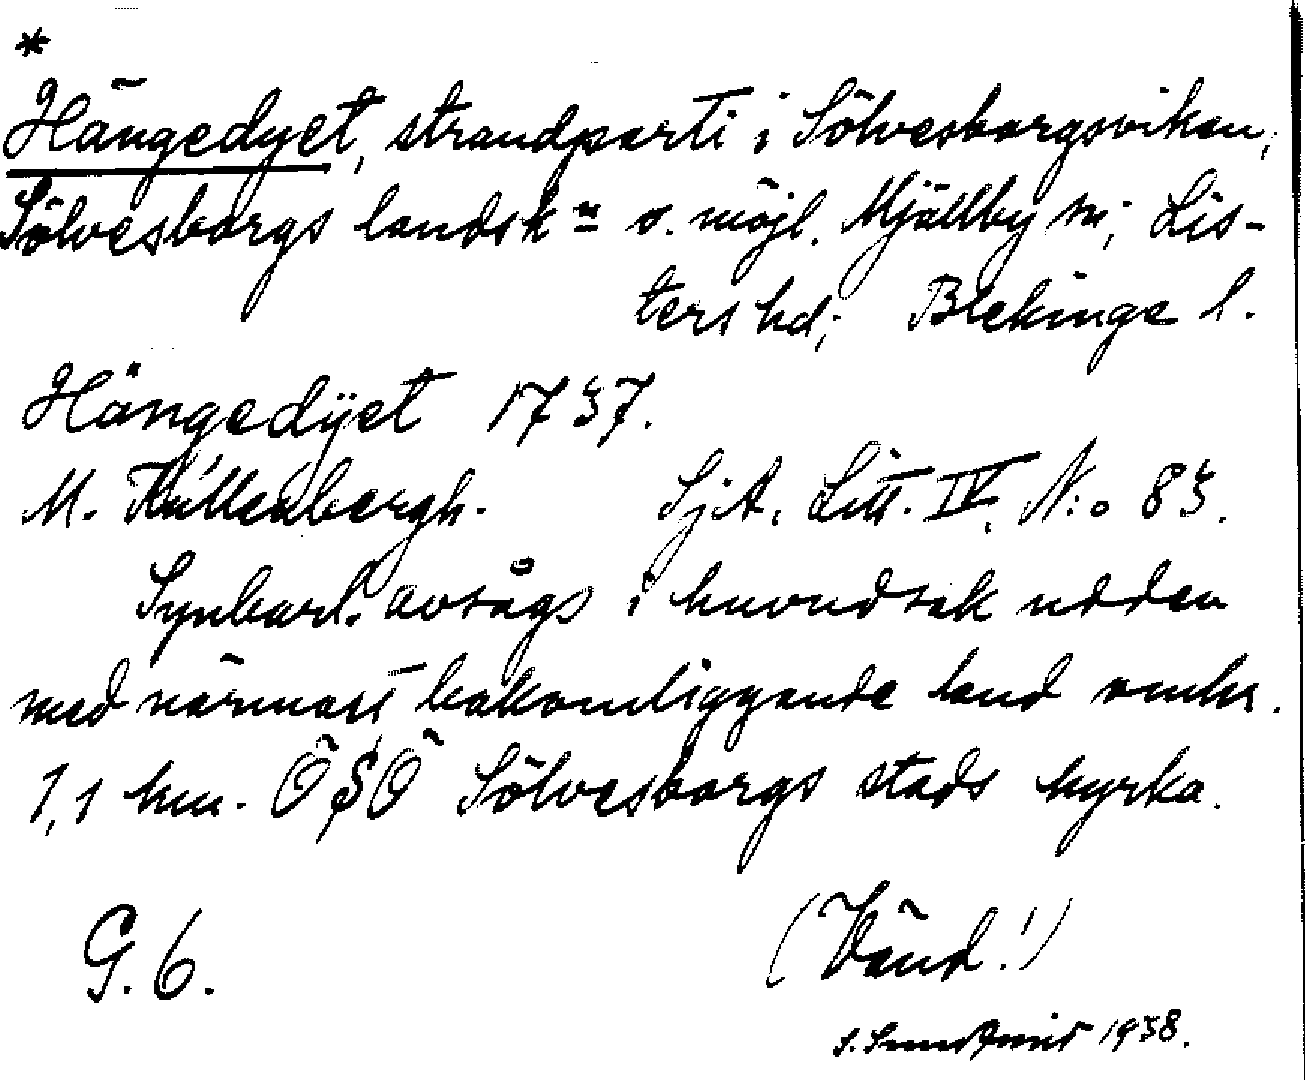 *
Hängedyet, strandparti i Sölvesborgsviken,
Sölvesborgs landsk:n o. möjl. Mjällby sn; Lis-
ters hd; Blekinge l.
Hängedÿet 1737.
M. Küllenbergh. SjA. Litt. IV. N:o 83.
Synbarl. avsågs i huvudsak udden
med närmast bakomliggande land omkr.
1,1 km. ÖSÖ Sölvesborgs stads kyrka.
G. 6. (Vänd!)
1938.